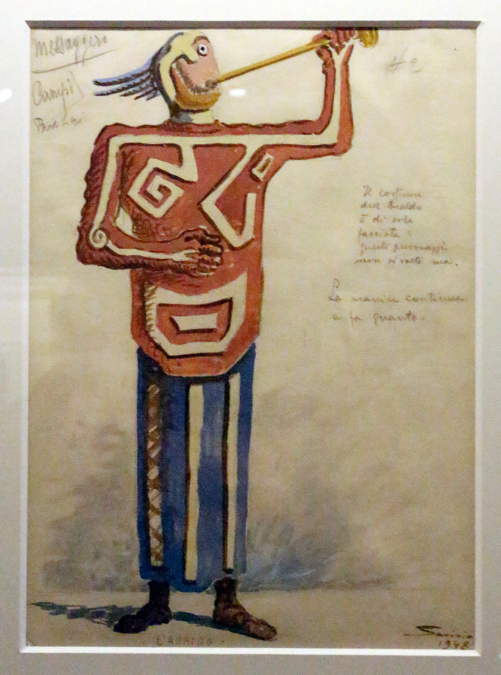 Messaggero
Campi
Il costume
dell'Araldo
È di sola
facciata:
questo personaggio
non si volta mai.
La manica continua
a fa guanto.
L'ARALDO
Savinio
1948